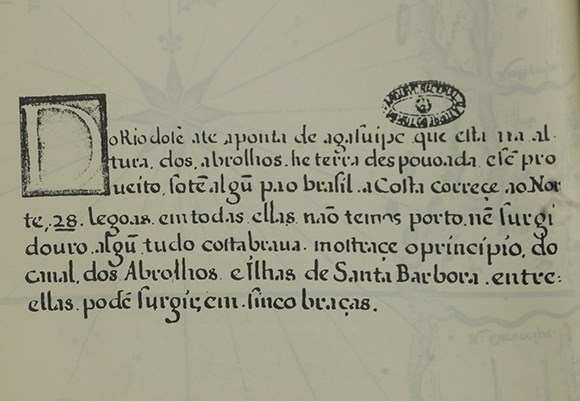 Do Rio dolse ate aponta de agasuipe que esta na al-
tura, dos, abrolhos. he terra despouoada esẽ pro
ueito, sotẽ algũ pao brasil. a Costa correçe ao Nor
te, 28. legoas. em todas, ellas. não temos porto. nẽ surgi
douro. algũ tudo costa braua. mostraçe o principio, do
canal, dos Abrolhos e Ilhas de Santa Barbora. entre:
ellas. podẽ surgir, em. sinco braças.